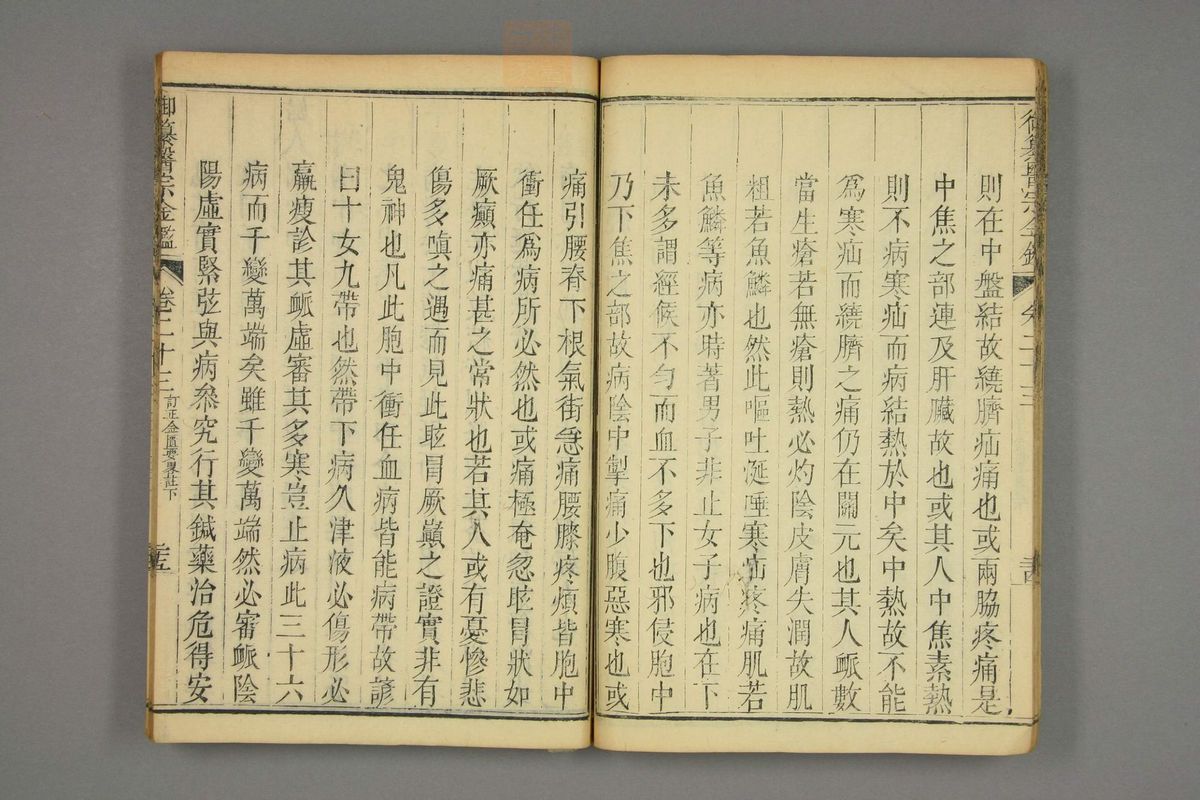 則在中盤結故繞臍疝痛也或兩脇疼痛是
中焦之部連及肝臟故也或其人中焦素熱
則不病寒疝而病結熱於中矣中熱故不能
爲寒疝而繞臍之痛仍在關元也其人脈數
當生瘡若無瘡則熱必灼陰皮膚失潤故肌
粗若魚鱗也然此嘔吐涎唾寒疝疼痛肌若
魚鱗等病亦時著男子非止女子病也在下
未多謂經候不勻而血不多下也邪侵胞中
乃下焦之部故病陰中掣痛少腹惡寒也或
痛引腰脊下根氣街急痛腰膝疼煩皆胞中
衝任爲病所必然也或痛極奄忽眩冒狀如
厥癲亦痛甚之常狀也若其人或有憂慘悲
傷多嗔之遇而見此眩冒厥巔之證實非有
鬼神也凡此胞中衝任血病皆能病帶故諺
曰十女九帶也然帶下病久津液必傷形必
羸瘦診其脈虛審其多寒豈止病此三十六
病而千變萬端矣雖千變萬端然必審脈陰
陽虛實緊弦與病叅究行其鍼藥治危得安
御纂醫宗金鑑 卷二十三 訂正金匱要畧註下 三五